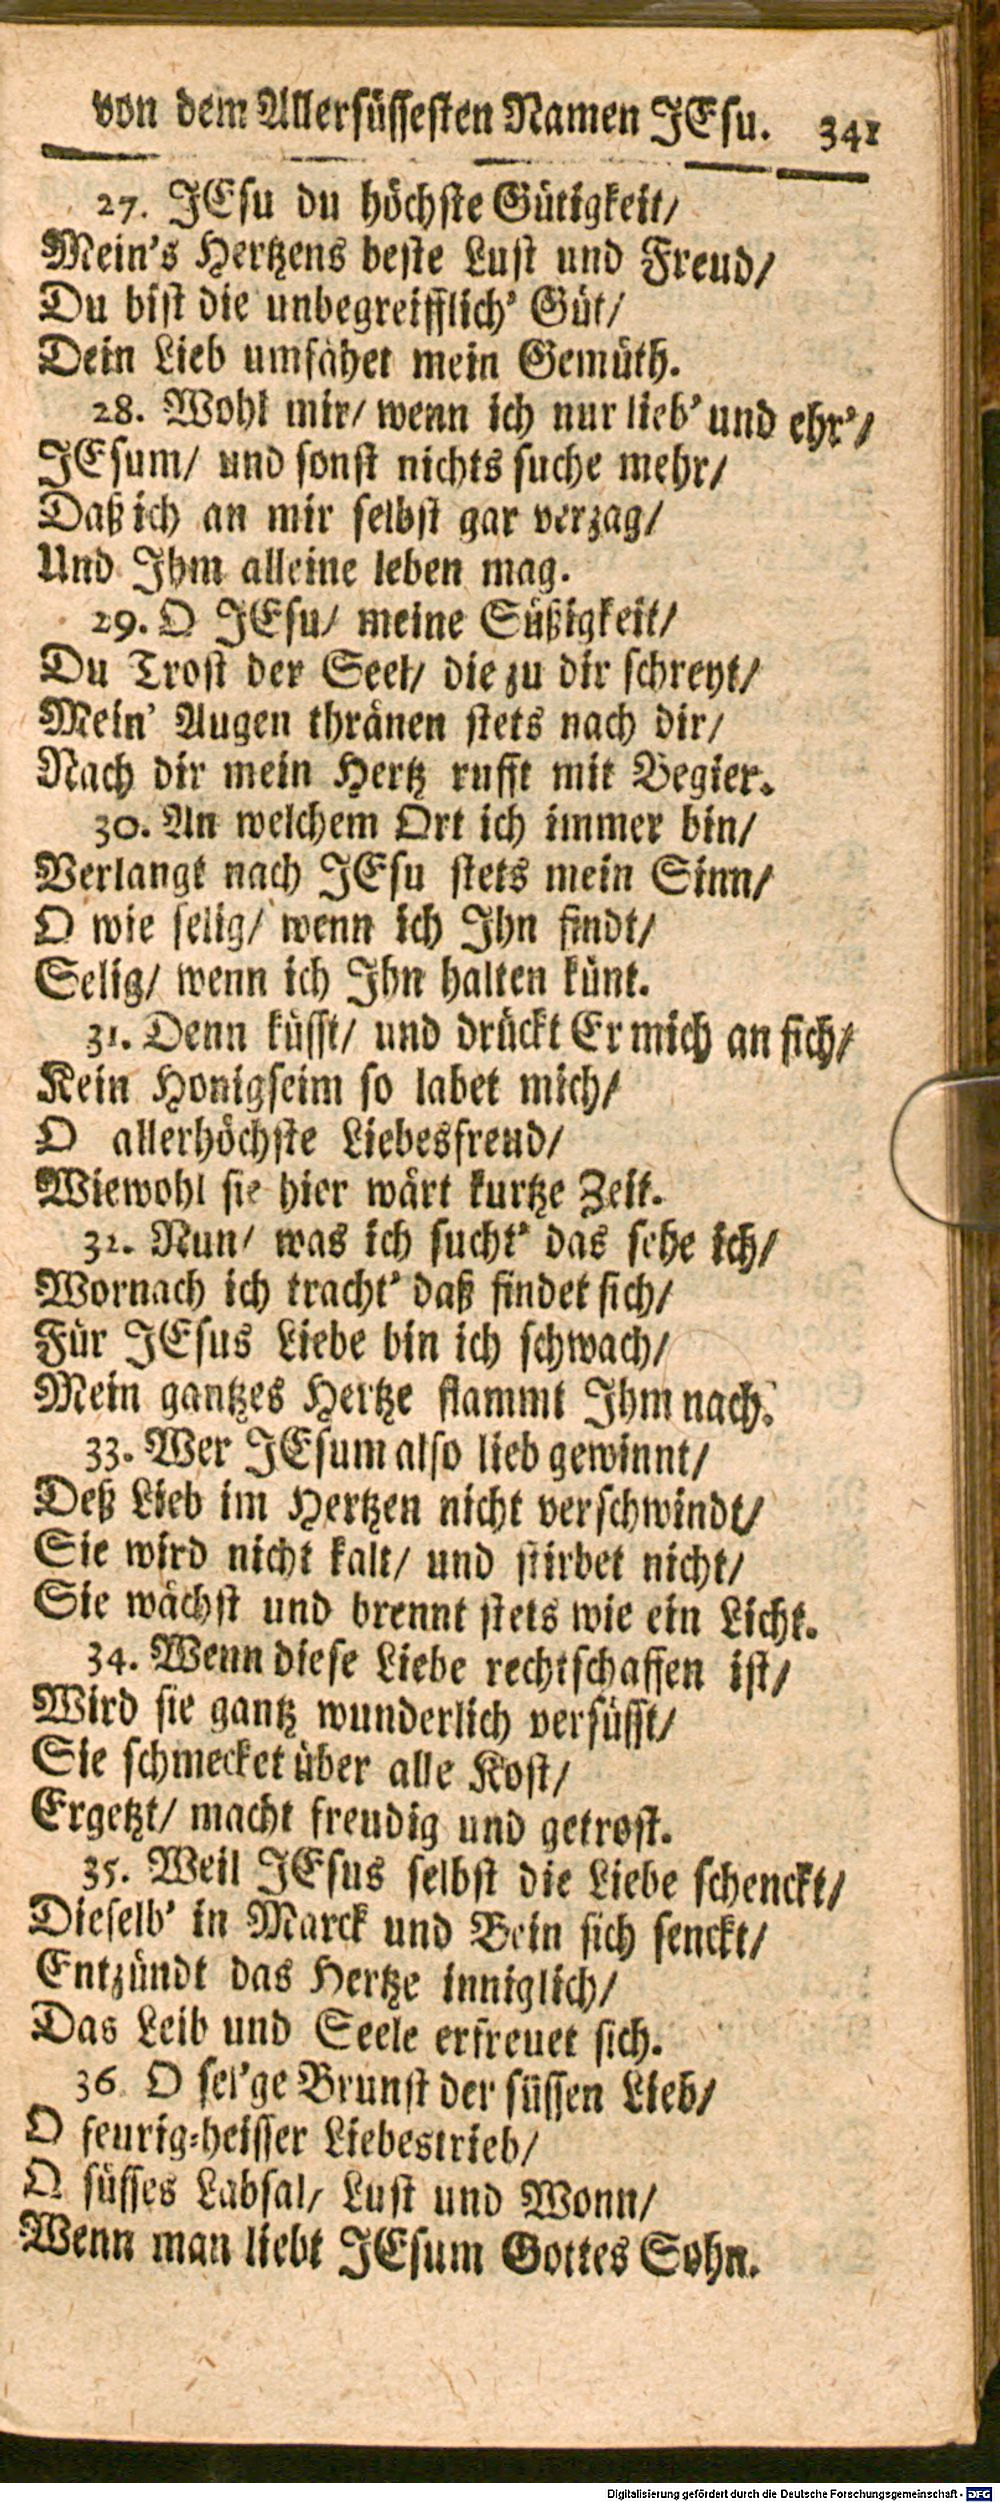 von dem Allersüssesten Namen JEsu. 341
27. JEsu du höchste Gütigkeit/
Mein's Hertzens beste Lust und Freud/
Du bist die unbegreifflich' Güt/
Dein Lieb umfähet mein Gemüth.
28. Wohl mir/ wenn ich nur lieb' und ehr'/
JEsum/ und sonst nichts suche mehr/
Daß ich an mir selbst gar verzag/
Und Ihm alleine leben mag.
29. O JEsu/ meine Süßigkeit/
Du Trost der Seel/ die zu dir schreyt/
Mein' Augen thränen stets nach dir/
Nach dir mein Hertz rufft mit Begier.
30. An welchem Ort ich immer bin/
Verlangt nach JEsu stets mein Sinn/
O wie selig/ wenn ich Ihn findt/
Selig/ wenn ich Ihn halten künt.
31. Denn küsst/ und drückt Er mich an sich/
Kein Honigseim so labet mich/
O allerhöchste Liebesfreud/
Wiewohl sie hier wärt kurtze Zeit.
32. Nun/ was ich sucht' das sehe ich/
Wornach ich tracht' daß findet sich/
Für JEsus Liebe bin ich schwach/
Mein gantzes Hertze flammt Ihm nach.
33. Wer JEsum also lieb gewinnt/
Deß Lieb im Hertzen nicht verschwindt/
Sie wird nicht kalt/ und stirbet nicht/
Sie wächst und brennt stets wie ein Licht.
34. Wenn diese Liebe rechtschaffen ist/
Wird sie gantz wunderlich versüsst/
Sie schmecket über alle Kost/
Ergetzt/ macht freudig und getrost.
35. Weil JEsus selbst die Liebe schenckt/
Dieselb' in Marck und Bein sich senckt/
Entzündt das Hertze inniglich/
Das Leib und Seele erfreuet sich.
36. O sel'ge Brunst der süssen Lieb/
O feurig-heisser Liebestrieb/
O süsses Labsal/ Lust und Wonn/
Wenn man liebt JEsum Gottes Sohn.
Digitalisierung gefördert durch die Deutsche Forschungsgemeinschaft - DFG